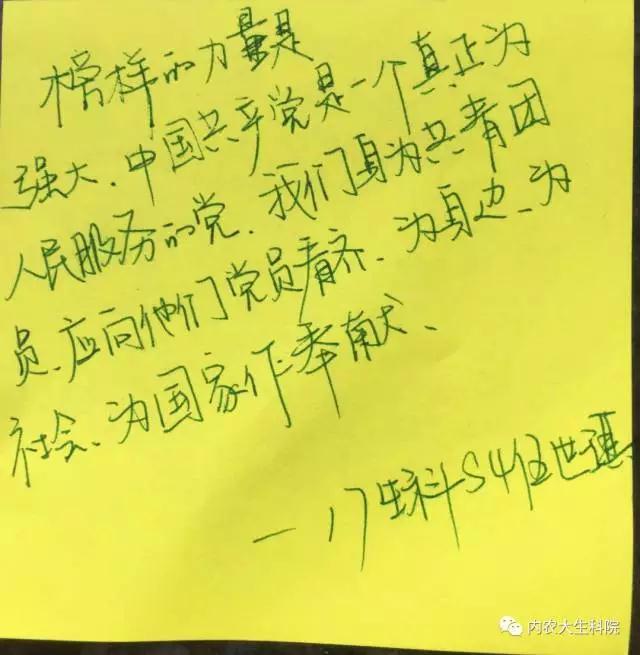 榜样的力量是
强大、中国共产党是一个真正为
人民服务的党、我们身为共青团
员、应向他们党员看齐、为身边、为
社会、为国家作奉献、
一17生科S4任世
内农大生科院